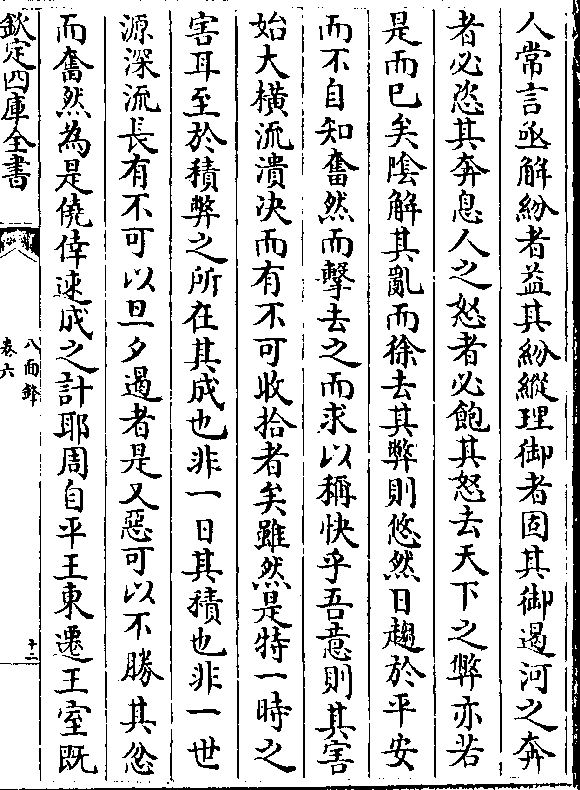 人常言亟解紛者益其紛縱理御者固其御遏河之奔
者必恣其奔息人之怒者必飽其怒去天下之弊亦若
是而已矣陰解其亂而徐去其弊則悠然日趨於平安
而不自知奮然而擊去之而求以稱快乎吾意則其害
始大橫流潰决而有不可收拾者矣雖然是特一時之
害耳至於積弊之所在其成也非一日其積也非一世
源深流長有不可以旦夕遏者是又惡可以不勝其忿
而奮然為是僥倖速成之計耶周自平王東遷王室既
欽定四庫全書
八面鋒
卷六
十二